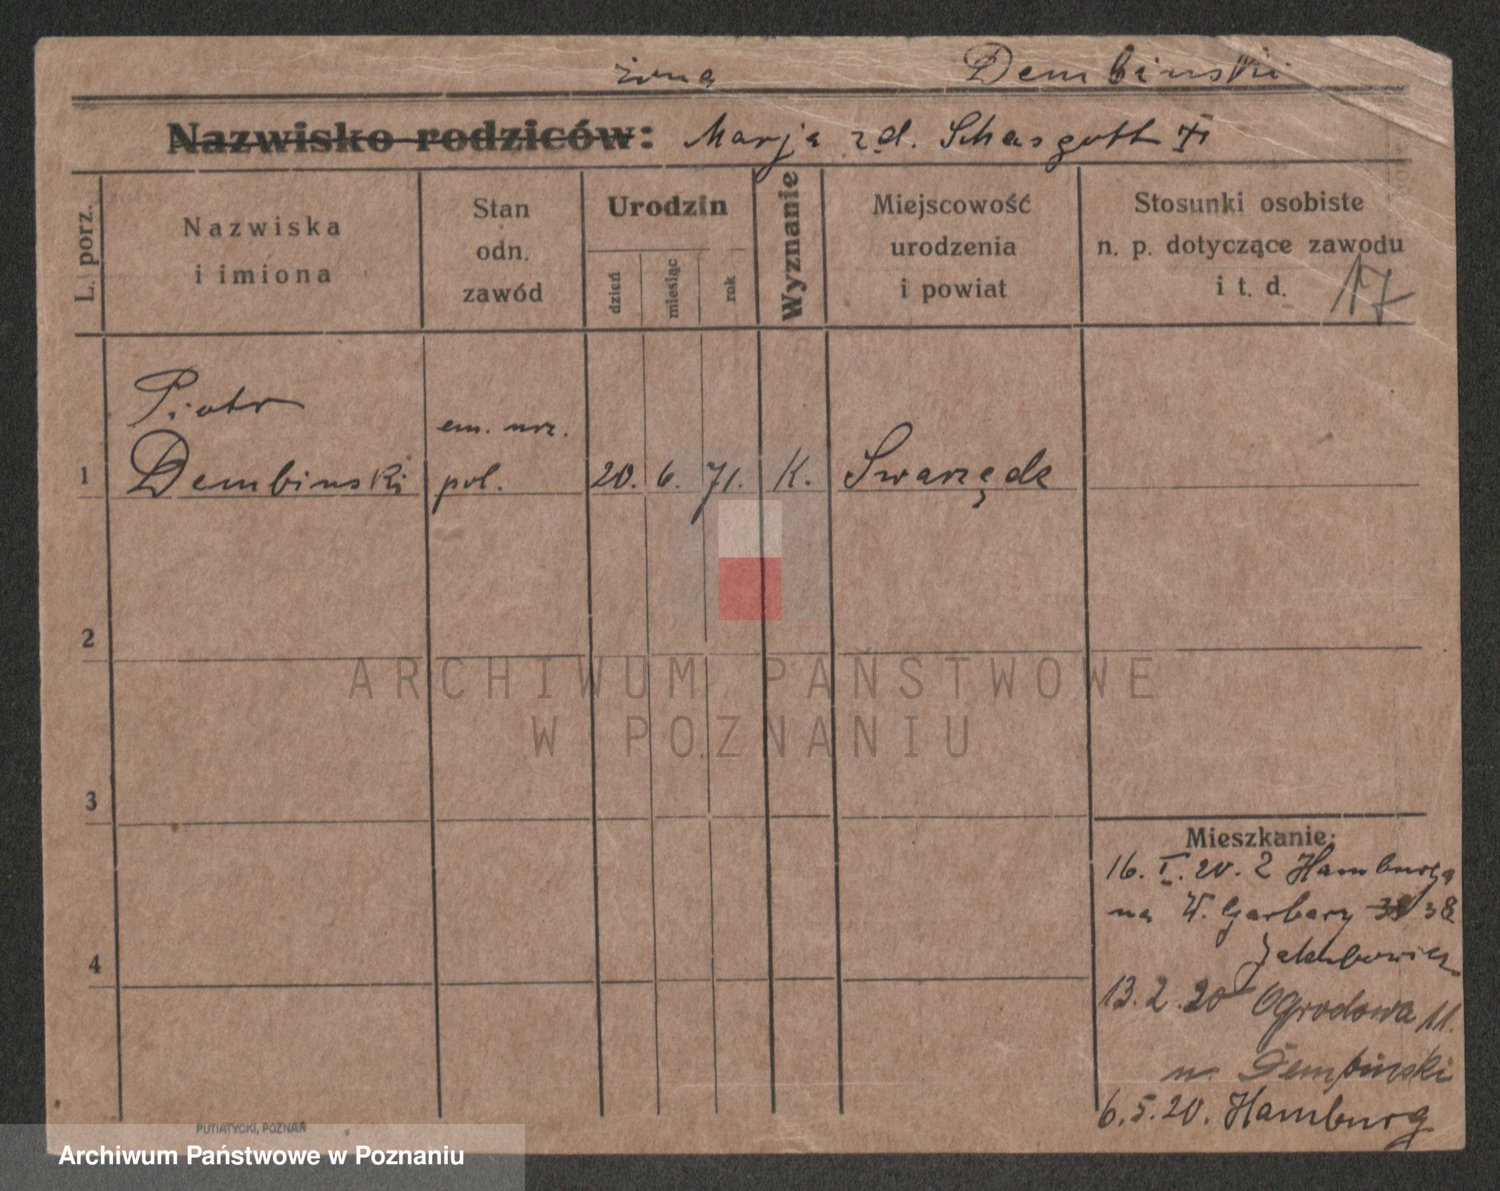 żona Dembinski
Nazwisko rodziców: Marja zd. Schasgott
L. porz.
Nazwiska
i imiona
Stan
odn.
zawód
Urodzin
dzień
miesiąc
rok
Wyznanie
Miejscowość
urodzenia
i powiat
Stosunki osobiste
n. p. dotyczące zawodu
i t. d.
17
Piotr
em. urz.
1 Dembinski pol. 20. 6. 71. K. Swarzędz
2
3
4
Mieszkanie:
16. I. 20. z Hamburga
na W. Garbary 38
Jakubowicz
13.2.20 Ogrodowa 11.
Dembinski
6.5.20. Hamburg
PUTIATYCKI, POZNAŃ
ARCHIWUM PAŃSTWOWE
W POZNANIU
Archiwum Państwowe w Poznaniu